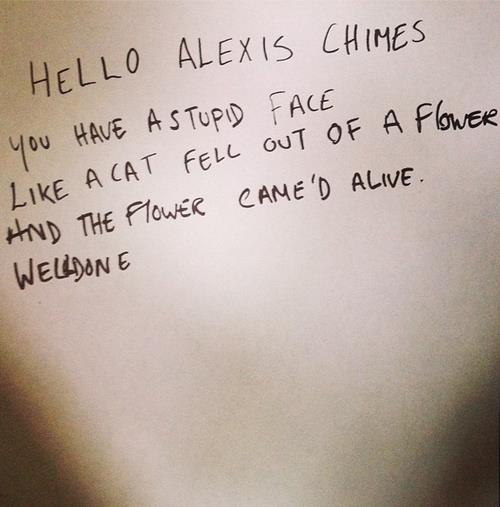 HELLO ALEXIS CHIMES
YOU HAVE A STUPID FACE
LIKE A CAT FELL OUT OF A FlOWER
AND THE FlOWER CAME'D ALIVE.
WELLDONE